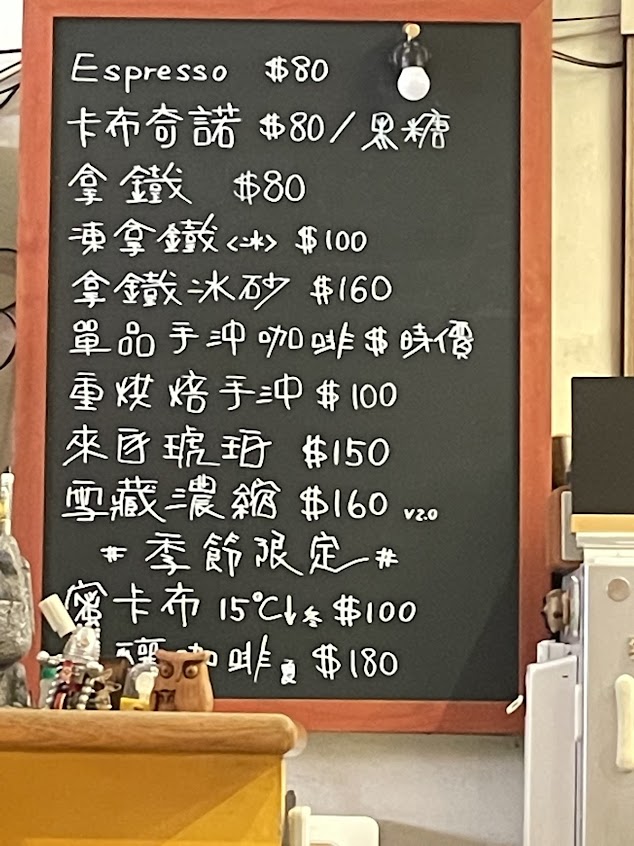 Espresso $80
卡布奇諾 $80/黑糖
拿鐵 $80
凍拿鐵<冰> $100
拿鐵冰砂 $160
單品手沖咖啡 $時價
重烘焙手沖 $100
來自琥珀 $150
雪藏濃縮 $160 V2.0
#季節限定#
蜜卡布 15℃↓冬 $100
釀咖啡夏 $180